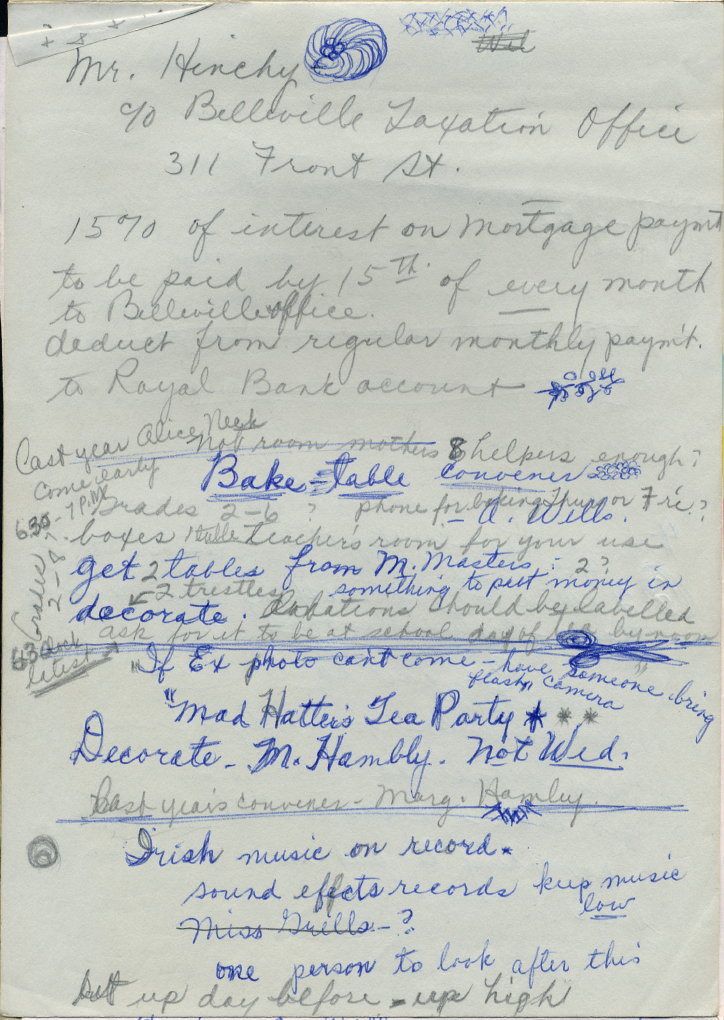 Wed
Mr. Hinchy
c/o Belleville Taxation Office
311 Front St.
15% of interest on mortgage paym't
to be paid by 15th of every month
to Belleville office.
deduct from regular monthly paym't.
to Royal Bank account
Last year Alice
Not room mothers 8 helpers enough?
come early
Bake-table convener
6.30 - 7 P.M. Grades 2-6 ? phone for baking Thurs or Fri.?
- A. Wills.
boxes teachers room for your use
Grades 2-8
get 2 tables from M. Masters - 2?
2 trestles something to put money in
decorate. Donations should be labelled
ask for it to be at school day of by noon
6.30
latest
"If Ex photo can't come - have someone bring
flash camera"
"Mad Hatter's Tea Party
Decorate - M. Hambly. Not Wed.
Last year's convener - Marg. Hamley.
Irish music on record.
sound effects records keep music
low
Miss Grills - ?
one person to look after this
put up day before - up high